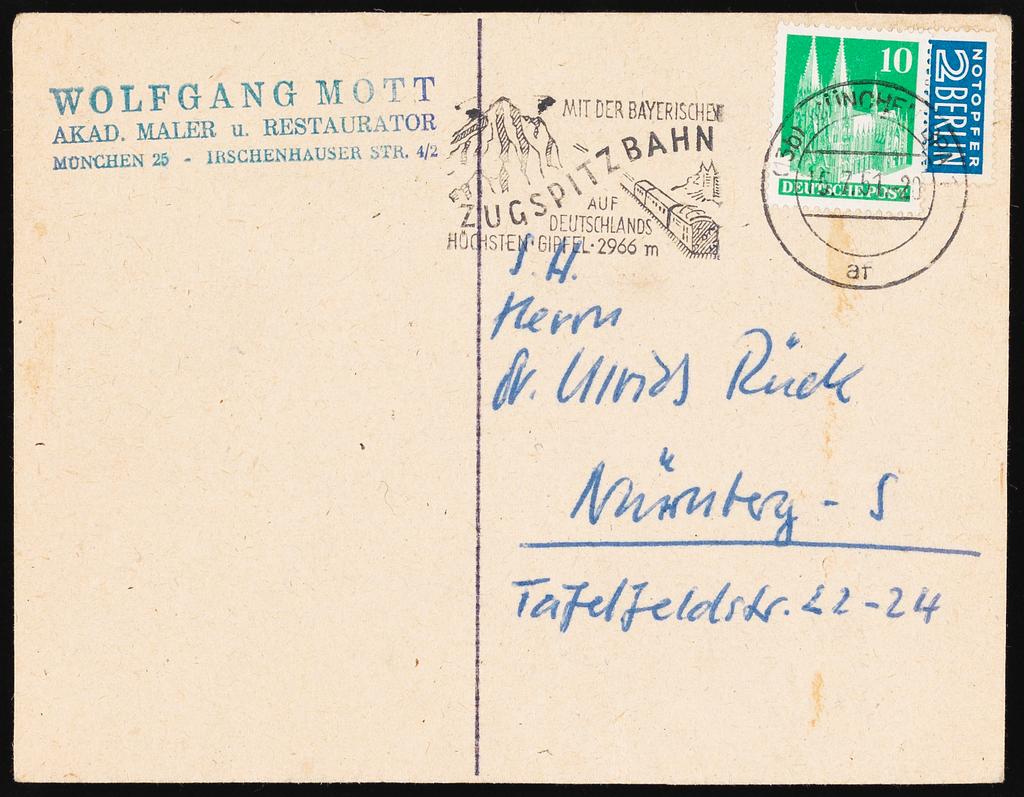 WOLFGANG MOTT
AKAD. MALER u. RESTAURATOR
MÜNCHEN 25 - IRSCHENHAUSER STR. 4/2
MIT DER BAYERISCHEN
ZUGSPITZBAHN
AUF
DEUTSCHLANDS
HÖCHSTEN GIPFEL·2966 m
10
DEUTSCHE POST
NOTOPFER
2 BERLIN
MÜNCHEN
ar
S. H.
Herrn
Dr. Ulrich Rück
Nürnberg - S
Tafelfeldstr. 22-24